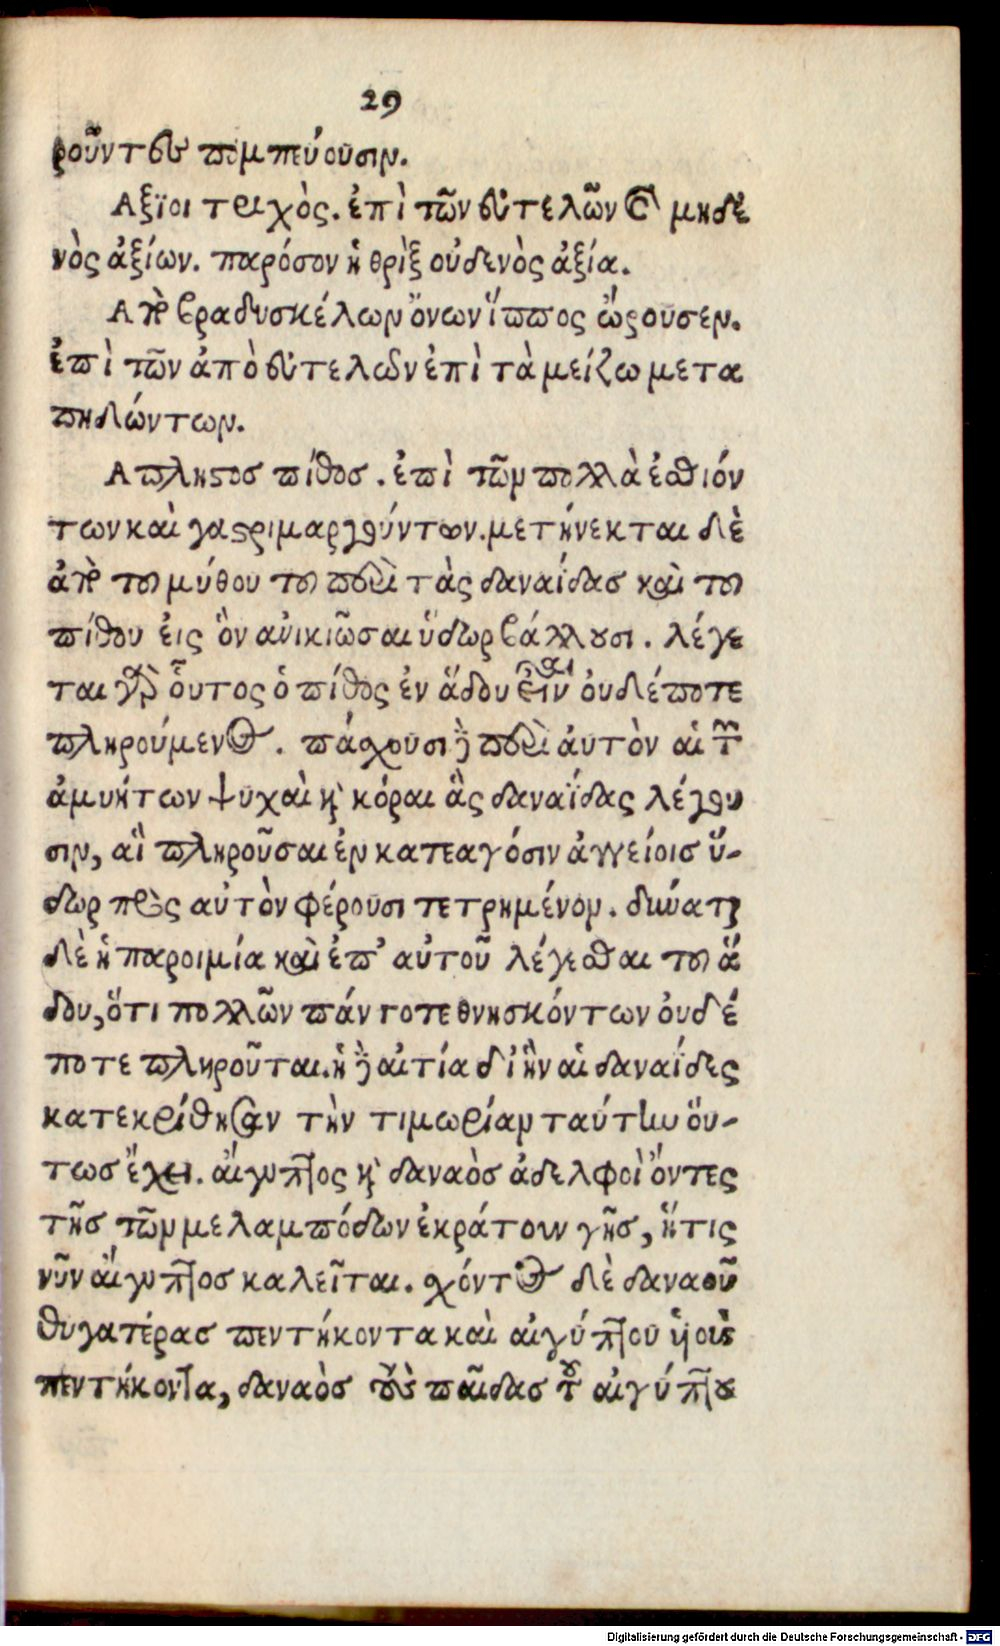 29
ροῦντες πομπεύουσιν.
Αξϊοι τριχὸς. ἐπὶ τῶν εὐτελῶν καὶ μηδε
νὸς ἀξίων. παρόσον ἡ θρὶξ οὐδενὸς ἀξία.
Απὸ βραδυσκέλων ὄνων ἵππος ὤρουσεν.
ἐπὶ τῶν ἀπὸ εὐτελῶν ἐπὶ τὰ μείζω μετα
πηδώντων.
Απληστος πίθος. ἐπὶ τῶν πολλὰ ἐσθιόν
των καὶ γαστριμαργούντων. μετήνεκται δὲ
ἀπὸ του μύθου του περὶ τὰς δαναίδας καὶ του
πίθου εἰς ὃν ἀνιμῶσαι ὕδωρ βάλλουσι. λέγε
ται γὰρ οὗτος ὁ πίθος ἐν ἅδου εἶναι οὐδέποτε
πληρούμενος. πάσχουσι δὲ περὶ αὐτὸν αἱ τῶν
ἀμυήτων ψυχαὶ καὶ κόραι ἃς δαναΐδας λέγου
σιν, αἳ πληροῦσαι ἐν κατεαγόσιν ἀγγείοις ὕ-
δωρ πρὸς αὐτὸν φέρουσι τετρημένον. δύναται
δὲ ἡ παροιμία καὶ ἐπ' αὐτοῦ λέγεσθαι του ἅ
δου, ὅτι πολλῶν πάντοτε θνησκόντων οὐδέ
ποτε πληροῦται. ἡ δὲ αἰτία δι ἣν αἱ δαναΐδες
κατεκρίθησαν τὴν τιμωρίαν ταύτην οὕ-
τως ἔχει. αἴγυπτος καὶ δαναὸς ἀδελφοὶ ὄντες
τῆς τῶν μελαμπόδων ἐκράτουν γῆς, ἥτις
νῦν αἴγυπτος καλεῖται. σχόντος δὲ δαναοῦ
θυγατέρας πεντήκοντα καὶ αἰγύπτου ὑιοὺς
πεντήκοντα, δαναὸς τοὺς παῖδας τοῦ αἰγύπτου
Digitalisierung gefördert durch die Deutsche Forschungsgemeinschaft - DFG